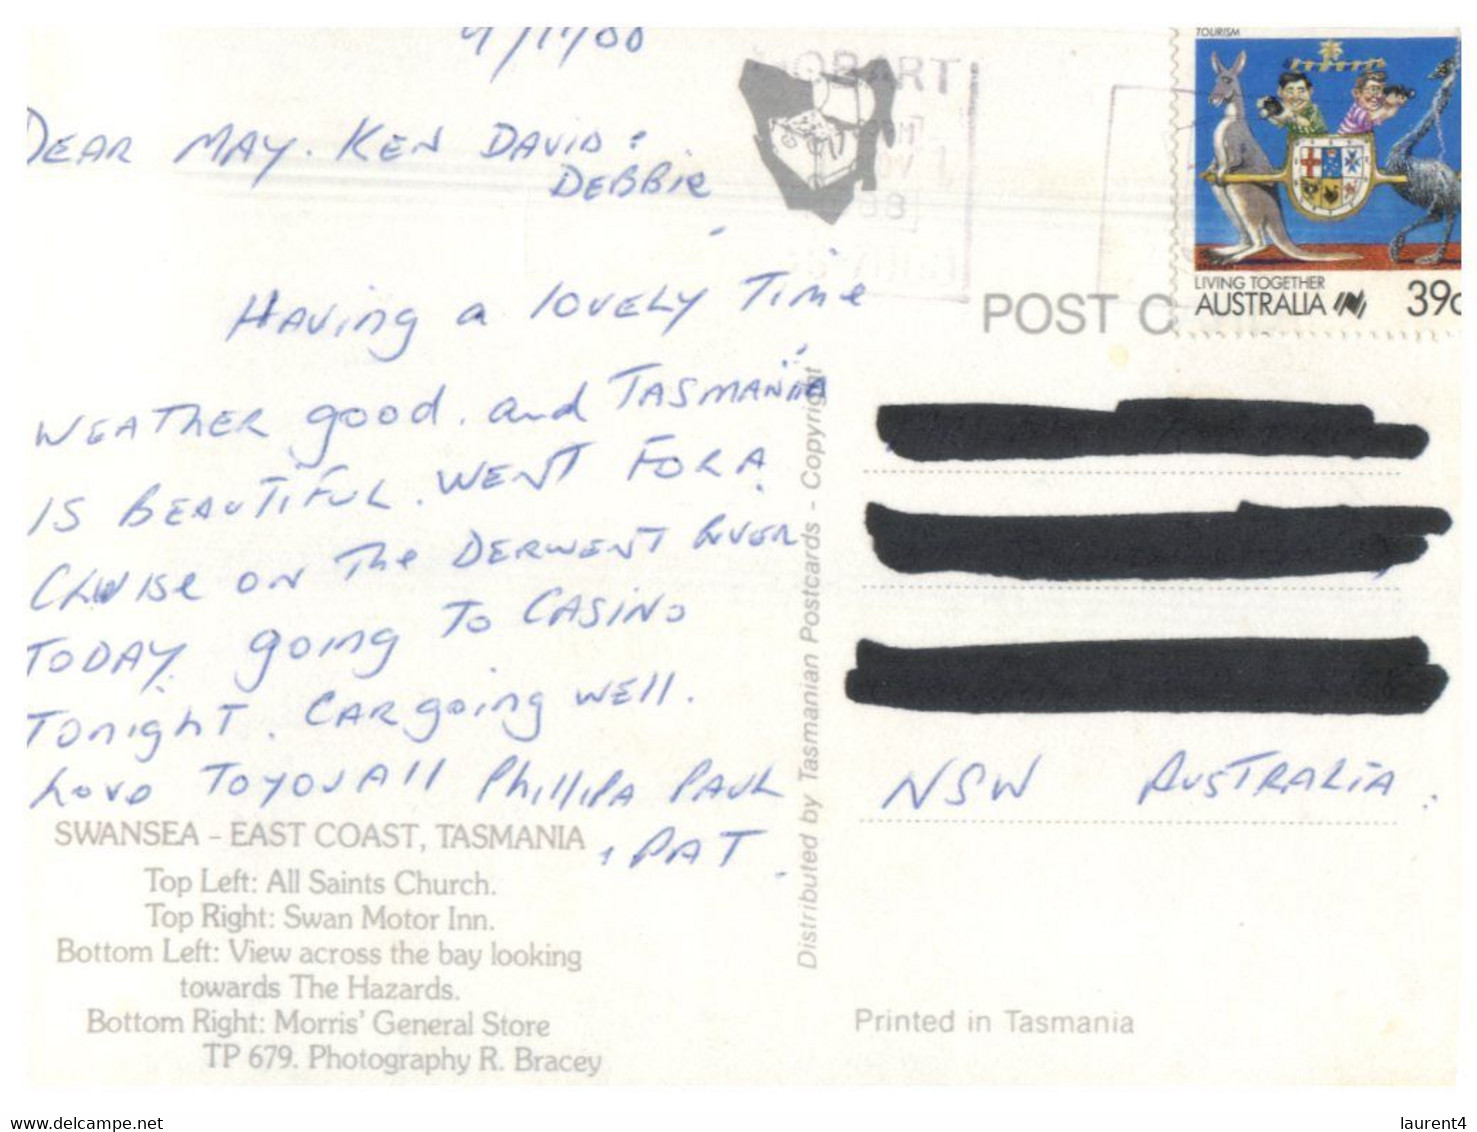 DEAR MAY. KEN DAVID &
DEBBIE
HAVING a LOVELY TIME
WEATHER good. and TASMANIA
IS BEAUTIFUL. WENT FOR A
CRUISE ON THE DERWENT RIVER
TODAY. going TO CASINO
TONIGHT. CAR going WELL.
LOVE TO YOU ALL PHILLIPA PAUL
+ PAT.
SWANSEA – EAST COAST, TASMANIA
Top Left: All Saints Church.
Top Right: Swan Motor Inn.
Bottom Left: View across the bay looking
towards The Hazards.
Bottom Right: Morris' General Store
TP 679. Photography R. Bracey
Distributed by Tasmanian Postcards - Copyright
HOBART
88
TOURISM
LIVING TOGETHER
AUSTRALIA 39c
POST C
NSW AUSTRALIA.
Printed in Tasmania
www.delcampe.net
laurent4